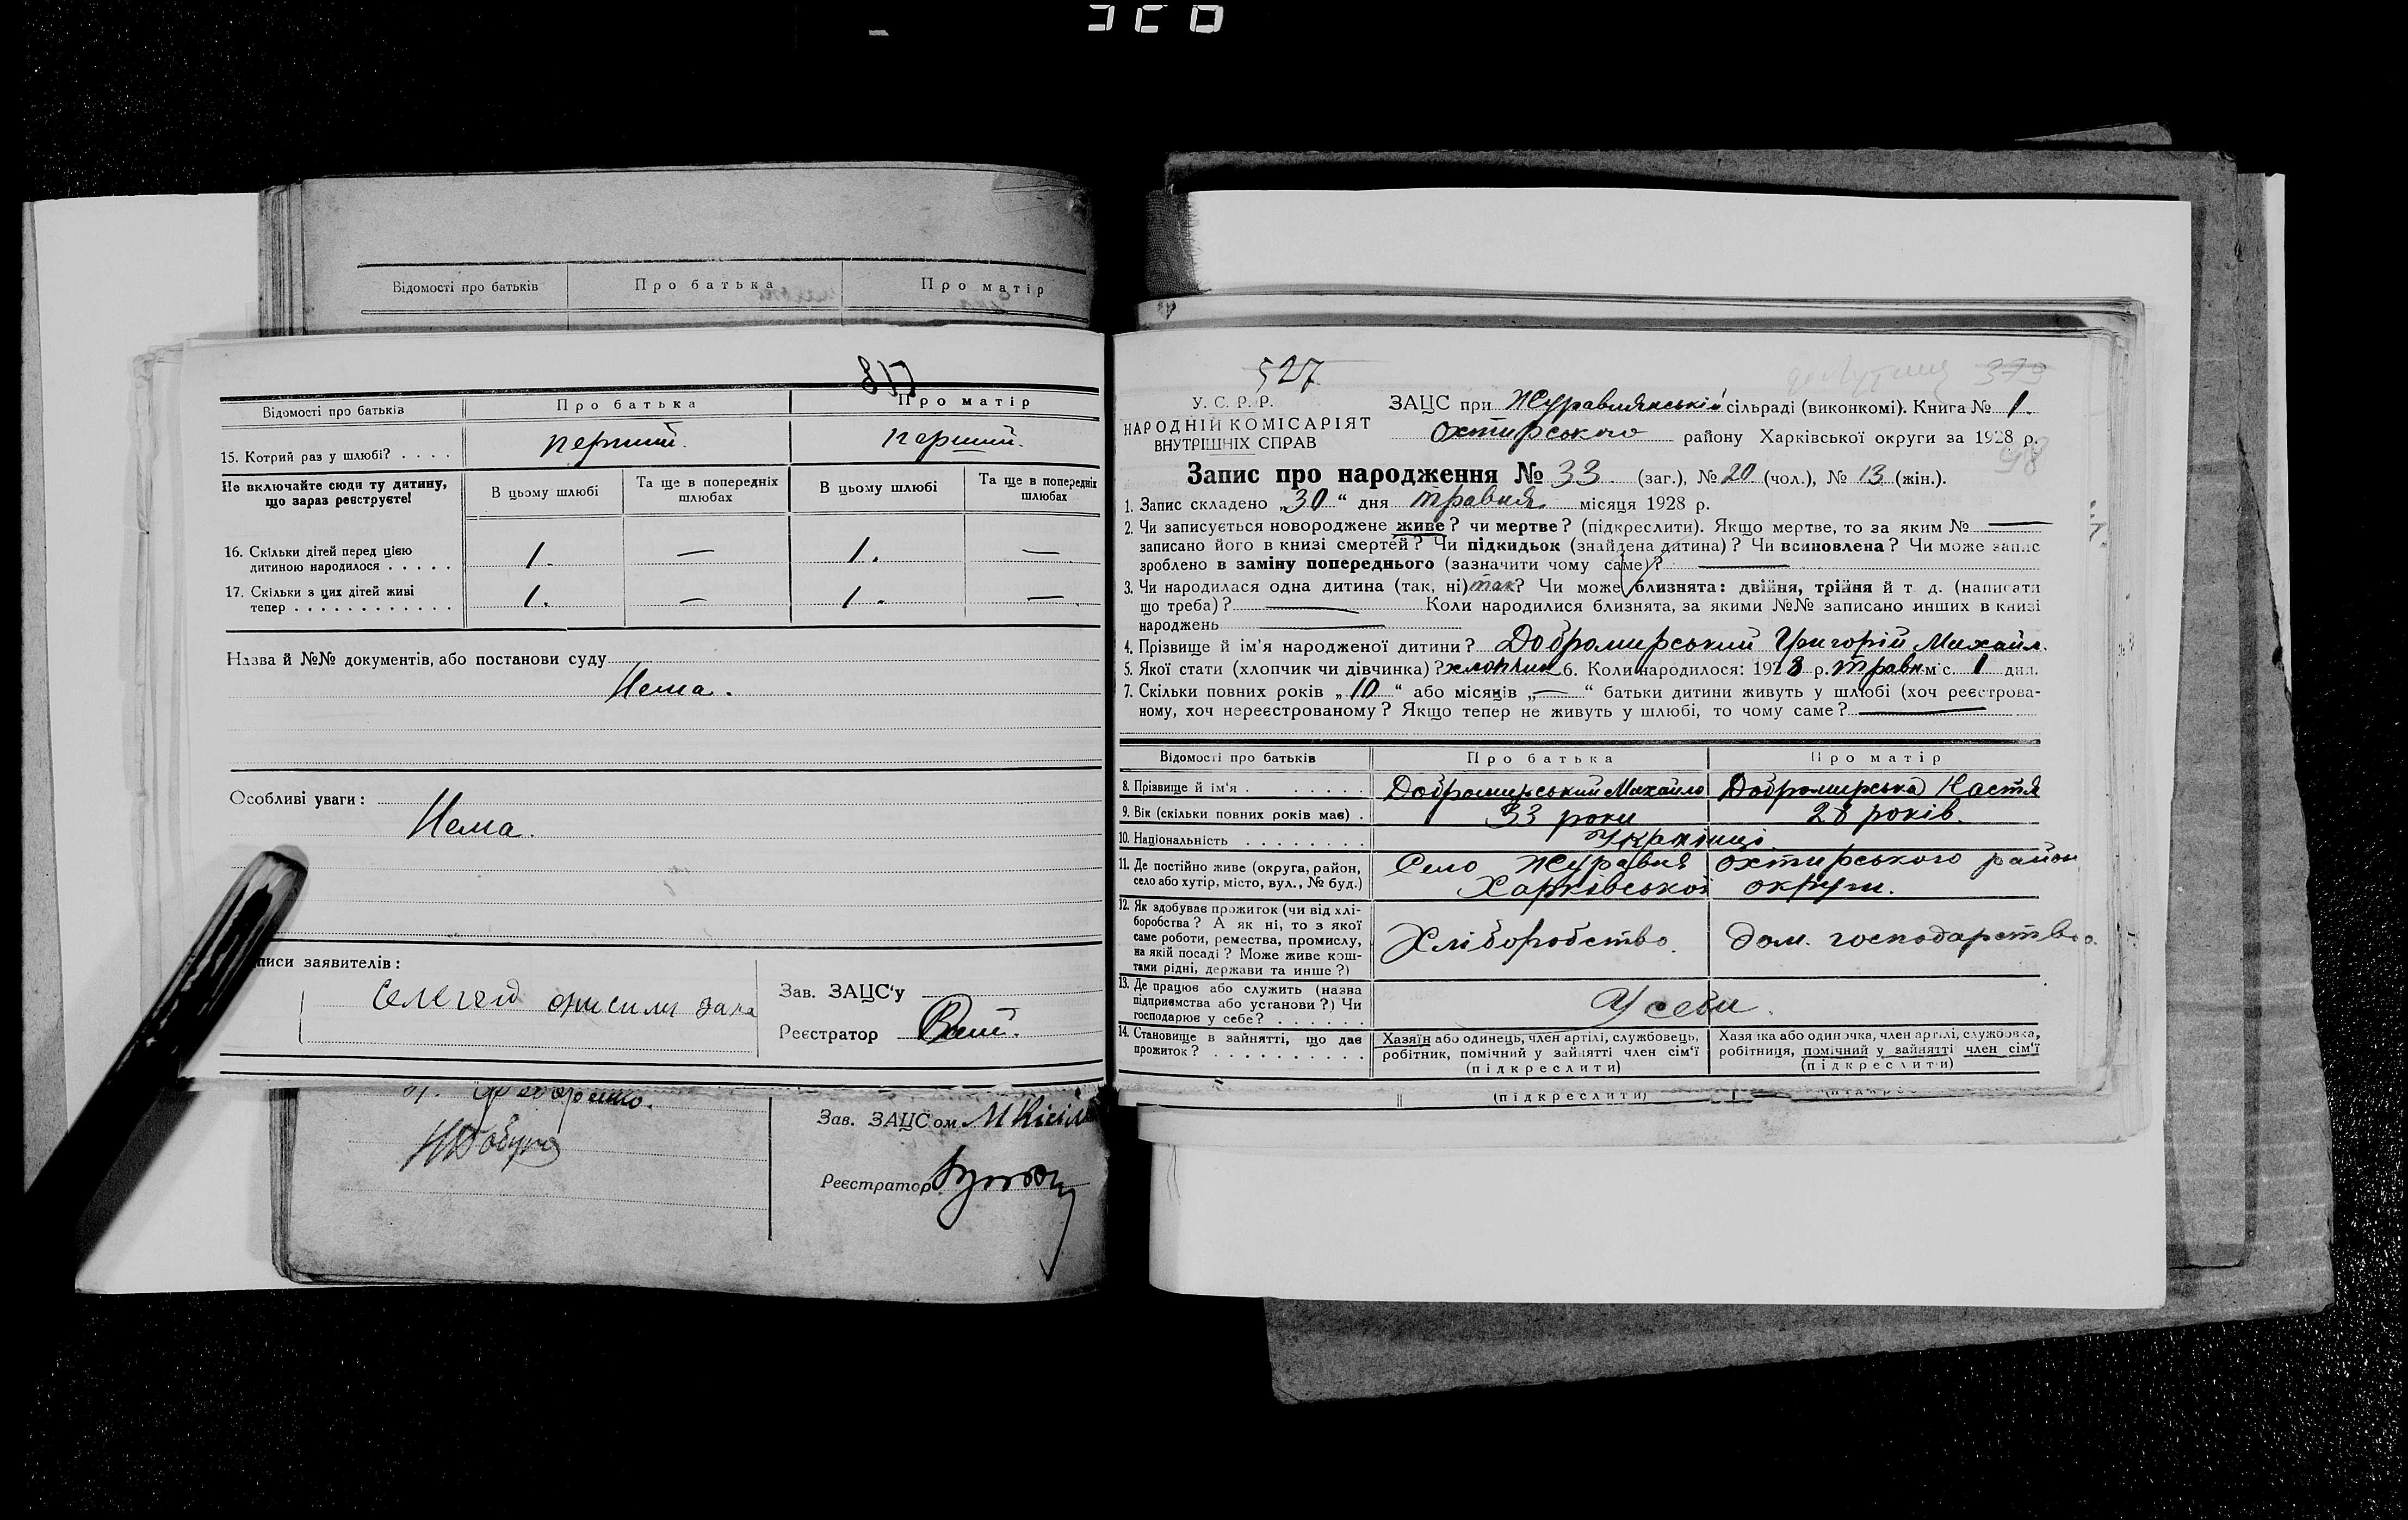 Відомості про батьків
Про батька
Про матір
Відомості про батьків
Про батька
Про матір
15. Котрий раз у шлюбі? . . . .
перший.
перший.
Не включайте сюди ту дитину, що зараз реєструєте!
В цьому шлюбі
Та ще в попередніх шлюбах
В цьому шлюбі
Та ще в попередніх шлюбах
16. Скільки дітей перед цією
дитиною народилося . . . . .
1.
—
1.
—
17. Скільки з цих дітей живі
тепер . . . . . . . . . . . .
1.
—
1.
—
Назва й №№ документів, або постанови суду
Нема.
Особливі уваги:
Нема.
писи заявителів:
Зав. ЗАЦС'у
Реєстратор
Зав. ЗАЦСом
Реєстратор
527
373
98
У. С. Р. Р.
НАРОДНІЙ КОМІСАРІЯТ
ВНУТРІШНІХ СПРАВ
ЗАЦС при Журавлянській сільраді (виконкомі). Книга № 1.
Охтирського району Харківської округи за 1928 р.
Запис про народження № 33 (заг.), № 20 (чол.), № 13 (жін.).
1. Запис складено „30" дня травня місяця 1928 р.
2. Чи записується новороджене живе? чи мертве? (підкреслити). Якщо мертве, то за яким № —
записано його в книзі смертей? Чи підкидьок (знайдена дитина)? Чи всиновлена? Чи може запис
зроблено в заміну попереднього (зазначити чому саме)? —
3. Чи народилася одна дитина (так, ні) так? Чи може близнята: двійня, трійня й т. д. (написати
що треба)? — Коли народилися близнята, за якими №№ записано инших в книзі
народжень —
4. Прізвище й ім'я народженої дитини? Добромирський Григорій Михайл.
5. Якої стати (хлопчик чи дівчинка)? хлопчик 6. Коли народилося: 1928 р. травн. міс. 1 дня.
7. Скільки повних років „10" або місяців „—" батьки дитини живуть у шлюбі (хоч реєстрова-
ному, хоч нереєстрованому? Якщо тепер не живуть у шлюбі, то чому саме? —
Відомості про батьків
Про батька
Про матір
8. Прізвище й ім'я . . . . . . .
Добромирський Михайло
Добромирська Настя
9. Вік (скільки повних років має) .
33 роки
28 років.
10. Національність . . . . . . . .
Українці.
11. Де постійно живе (округа, район,
село або хутір, місто, вул., № буд.)
Село Журавня Охтирського район
Харківської округи.
12. Як здобуває прожиток (чи від хлі-
боробства? А як ні, то з якої
саме роботи, ремества, промислу,
на якій посаді? Може живе кош-
тами рідні, держави та инше?)
Хліборобство.
дом. господарство.
13. Де працює або служить (назва
підприємства або установи?) Чи
господарює у себе? . . . . . .
У себи.
14. Становище в зайнятті, що дає
прожиток? . . . . . . . . . .
Хазяїн або одинець, член артілі, службовець,
робітник, помічний у зайнятті член сім'ї
(підкреслити)
Хазяїка або одиночка, член артілі, службовка,
робітниця, помічний у зайнятті член сім'ї
(підкреслити)
(підкреслити)